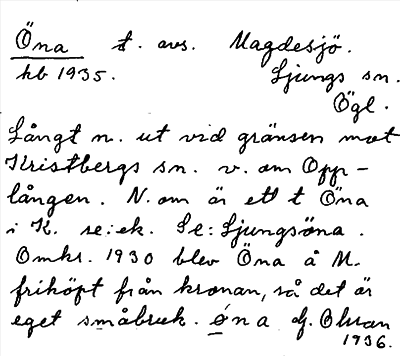 Öna t. avs. Magdesjö.
hb 1935. Ljungs sn.
Ögl.
Långt n. ut vid gränsen mot
Kristbergs sn. v. om Opp-
lången. N. om är ett t Öna
i K. se: ek. Se: Ljungsöna.
Omkr. 1930 blev Öna å M.
friköpt från kronan, så det är
eget småbruk. øna af. Olsson
1936.